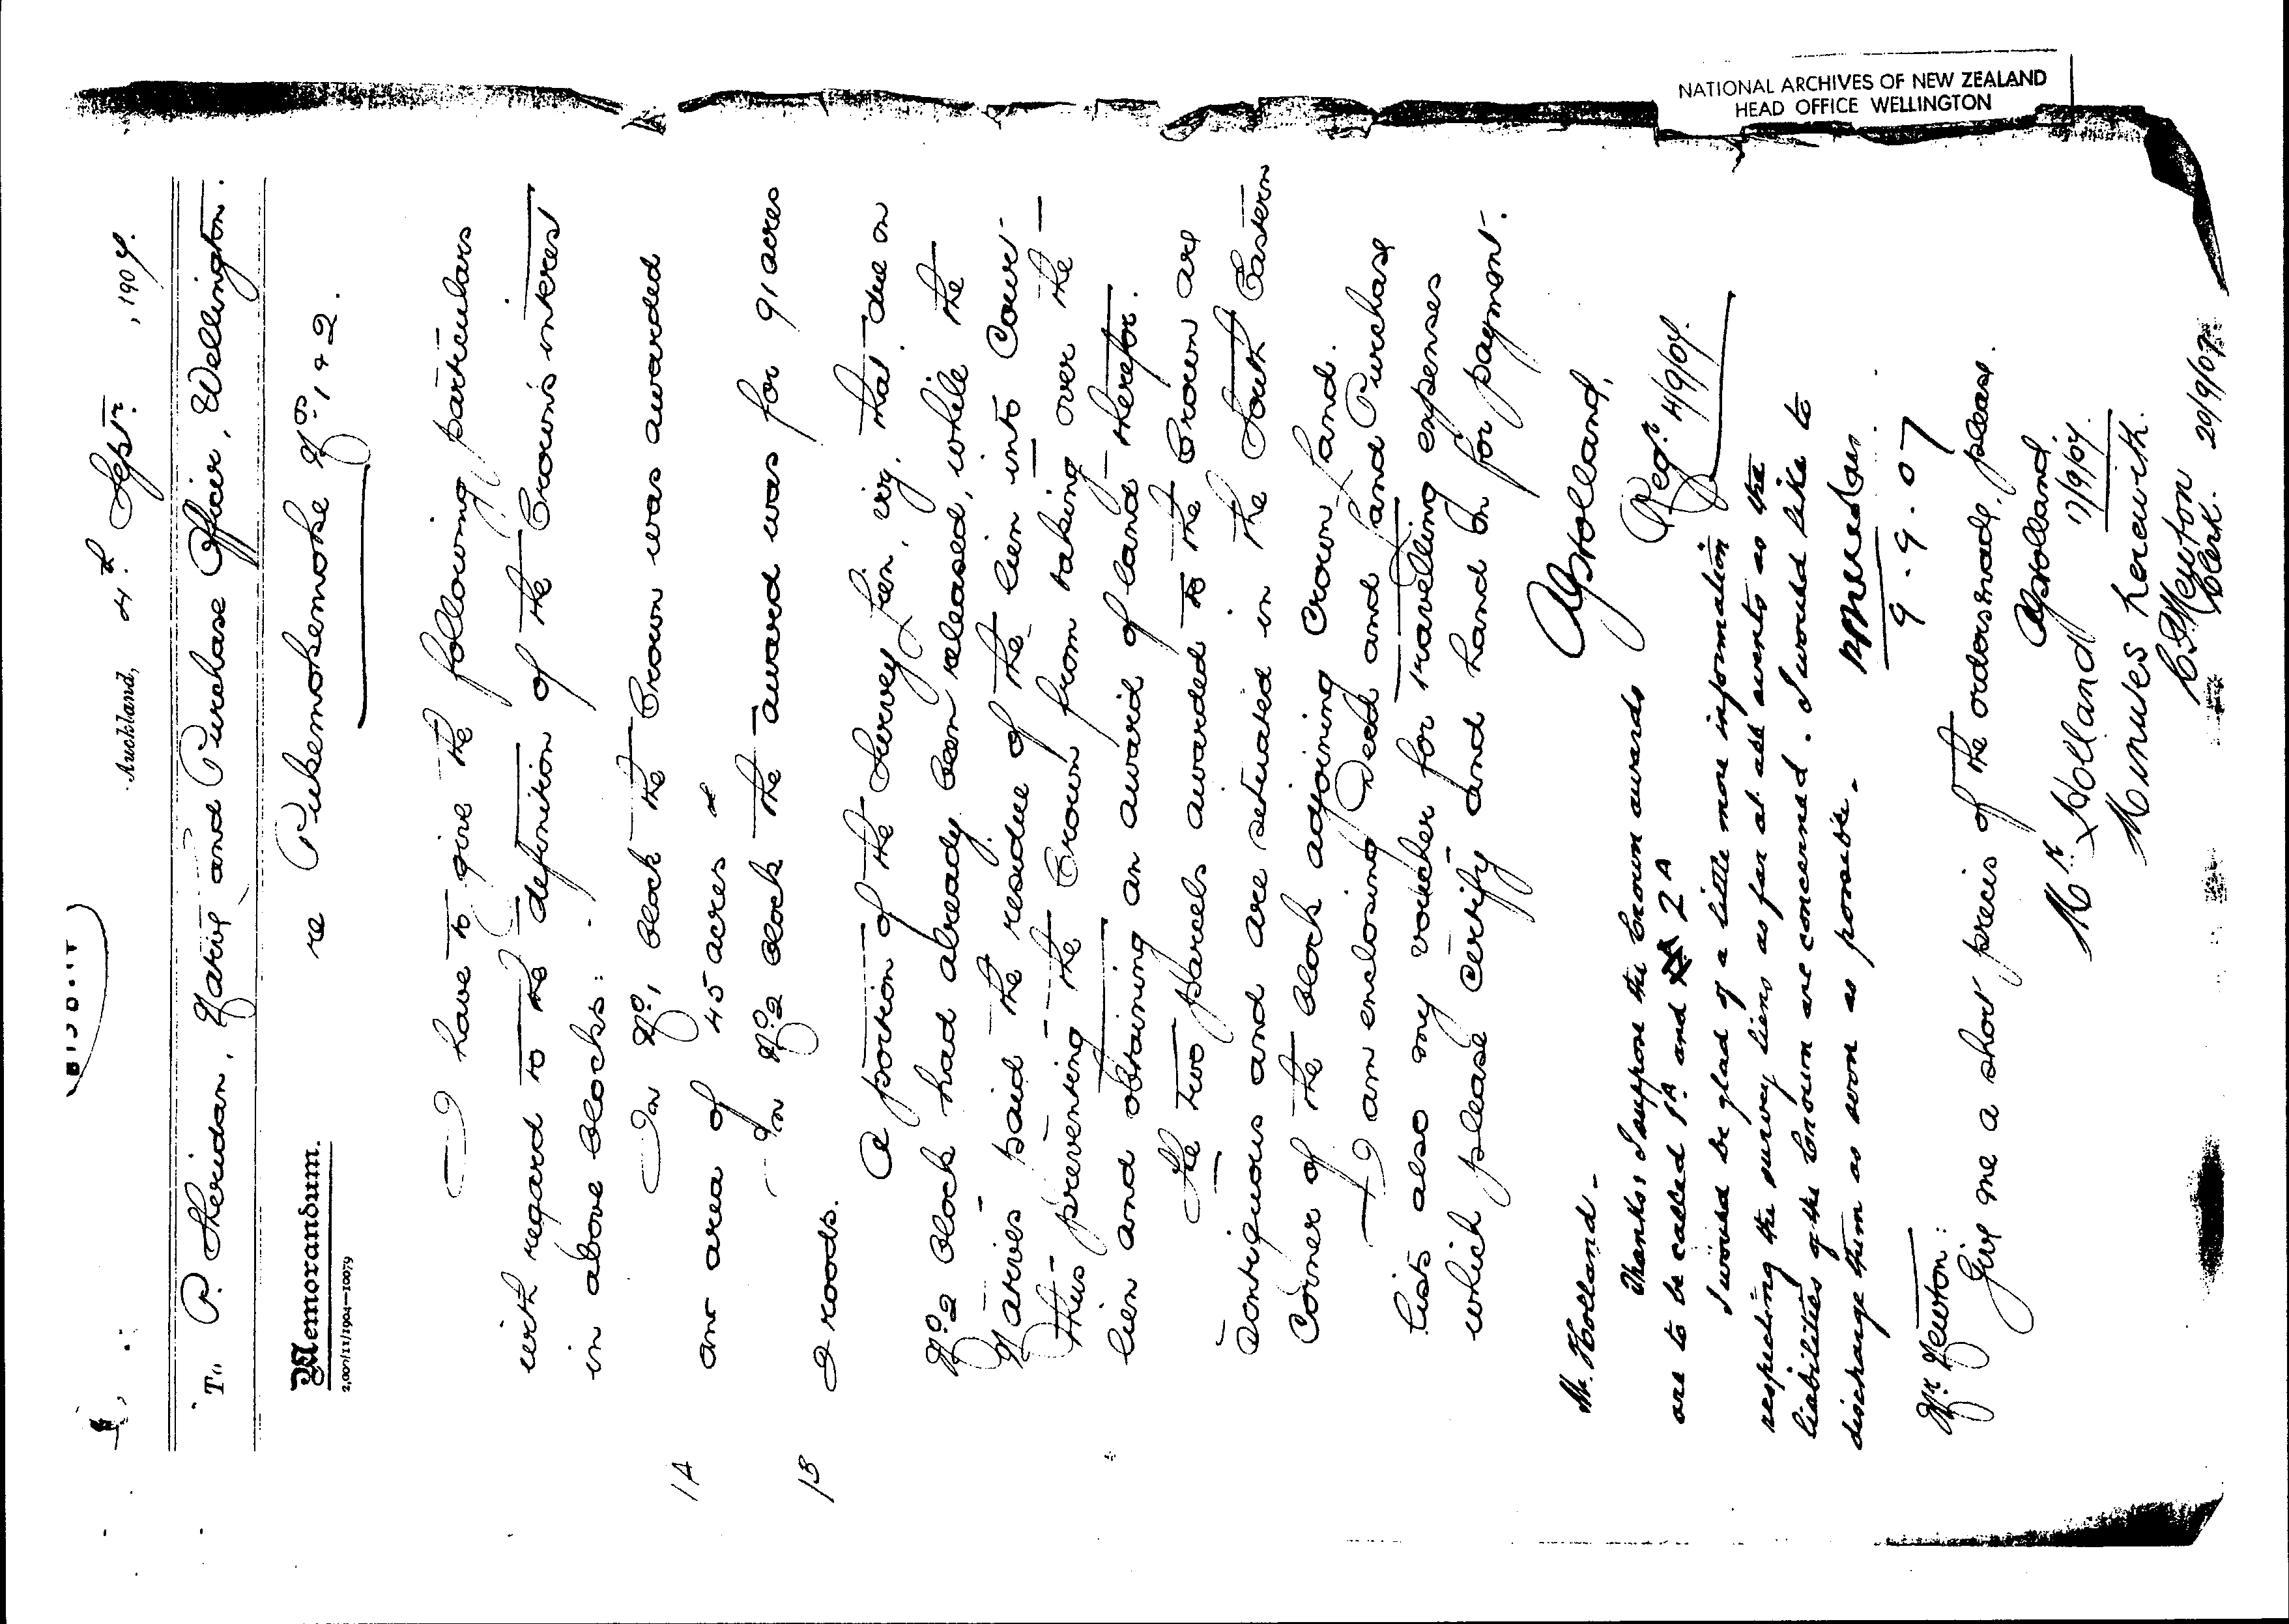 NATIONAL ARCHIVES OF NEW ZEALAND
HEAD OFFICE WELLINGTON
Auckland, 4th Septr. , 1907.
To P. Sheridan, Native Land Purchase Officer, Wellington.
Memorandum.
2,000/11/1904—10079
re Pukemokemoke Nos. 1 & 2.
I have to give the following particulars
with regard to the definition of the Crown's interest
in above blocks:
1A
In No. 1 block the Crown was awarded
an area of 45 acres
1B
In No. 2 block the award was for 91 acres
2 roods.
A portion of the Survey lien, viz. that due on
No. 2 block had already been released, while the
Natives paid the residue of the lien into Court
thus preventing the Crown from taking over the
lien and obtaining an award of land therefor.
The two parcels awarded to the Crown are
contiguous and are situated in the South Eastern
Corner of the block adjoining Crown land.
I am enclosing Deed and Land Purchase
lists also my voucher for travelling expenses
which please certify and hand on for payment.
Holland,
4/9/07.
Mr. Holland.
Thanks: I suppose the Crown awards
are to be called 1A and 2A
I would be glad of a little more information
respecting the survey liens as far at all events as the
liabilities of the Crown are concerned. I would like to
discharge them as soon as possible.
9.9.07
Mr. Newton:
Give me a short precis of the orders made, please.
Holland.
Mr. Holland
Minutes herewith
Newton
Clerk. 20/9/07